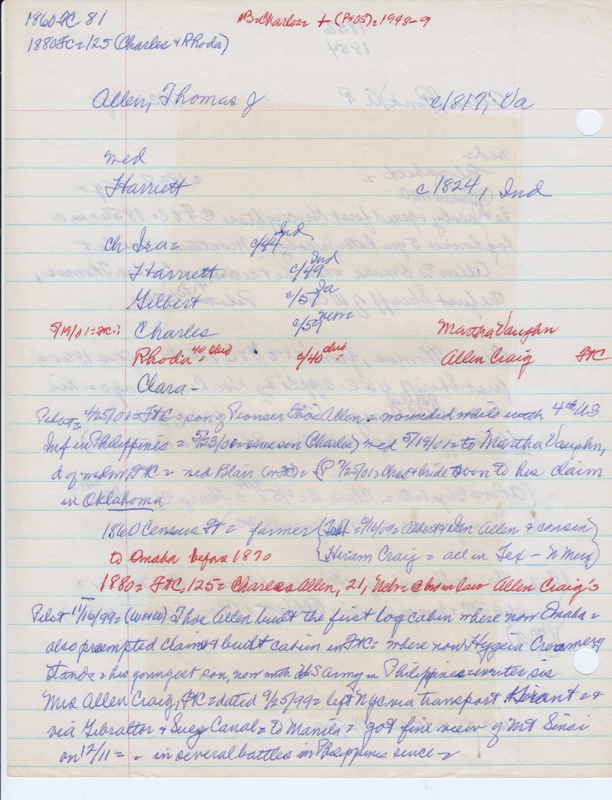 1860 FC 81
B=Charles= + (P+05)= 1948-9
1880 FC=125 (Charles & Rhoda)
Allen, Thomas J c/1817, Va
med
Harriett c 1824, Ind
ch Ira= c/44 Ind
Harriett c/49 Ind
Gilbert c/57 Ia
5/19/01=FC= Charles c/59 Martha Vaughn
Rhoda=40 Ohio c/40 Ohio Allen Craig FC
Clara -
Pilot= 4/25/01=FC=son of Pioneer Thos Allen= wounded while with 4th US
Inf in Philippines = 5/23/00=same son (Charles) med 5/19/01=to Martha Vaughn,
d of FC = (P 7/25/01=Chas & bride soon to his claim
in Oklahoma
1860 Census Ft = farmer Allen & cousin
to Omaha before 1870 Hiram Craig = all in Tex - N Mex
1880= FC, 125= Charles Allen, 21, Neb= c bro in law Allen Craig's
Pilot 11/16/99= (W&W) Thos Allen built the first log cabin where now Omaha=
also preempted claim & built cabin in FC= where now Hygeia Creamery
stands = his youngest son, now with US Army in Philippines=writes sis
Mrs Allen Craig, FC=dated 9/25/99= left NYC via transport Grant =
via Gibraltar & Suez Canal= to Manila = got fine view of Mt Sinai
on 12/11= = in several battles in Philippine since =